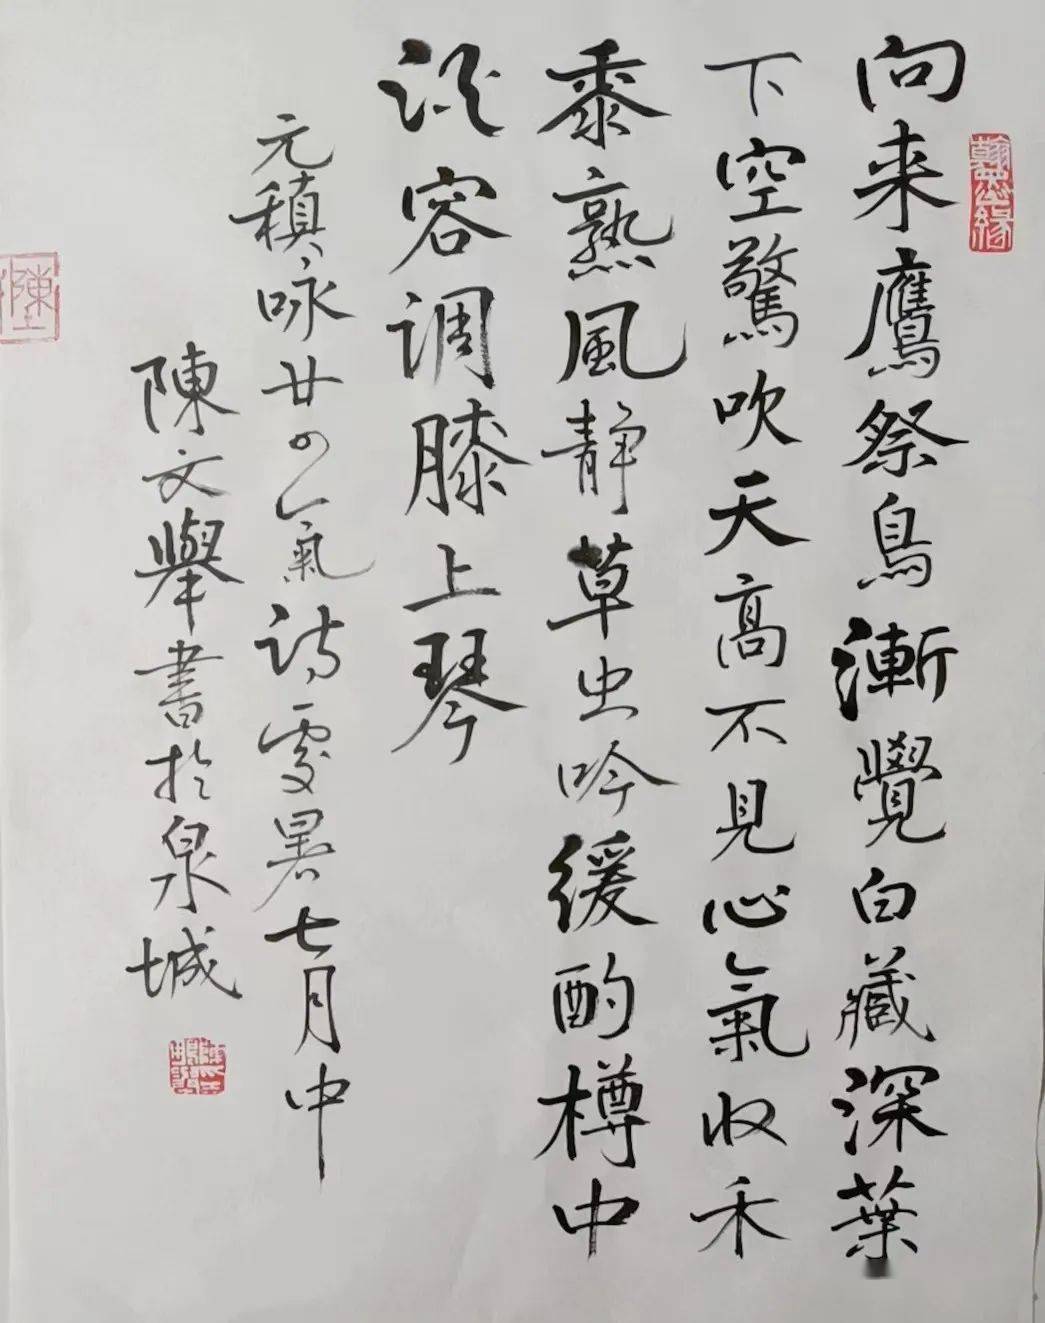 翰墨緣
向来鷹祭鳥漸覺白藏深葉
下空驚吹天高不見心氣收禾
黍熟風静草虫吟緩酌樽中
容调膝上琴
元稹咏廿四氣诗處暑七月中
陳文舉書於泉城